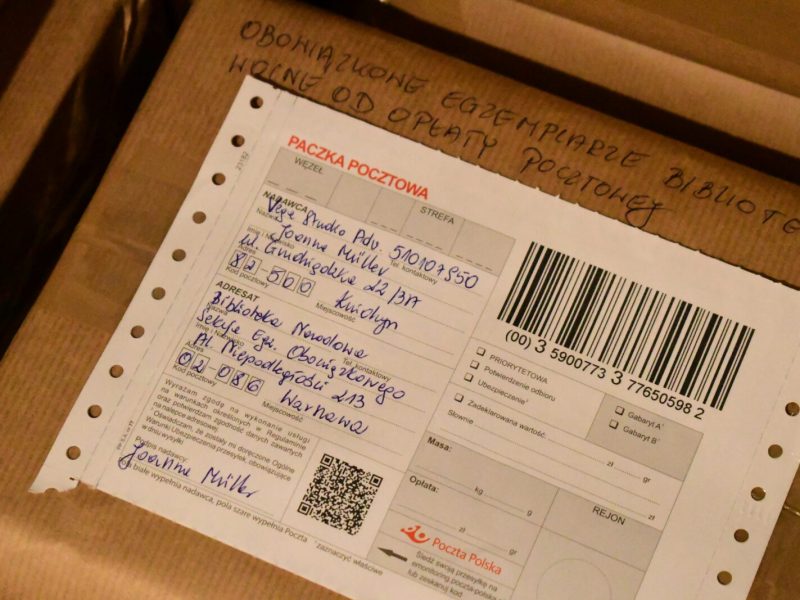 OBOWIĄZKOWE EGZEMPLARZE BIBLIOTE
WOLNE OD OPŁATY POCZTOWEJ
PACZKA POCZTOWA
WĘZEŁ
STREFA
NADAWCA
Vega Studio Adv. 510107950
Nazwa
Tel. kontaktowy
Joanna Müller
Imię i Nazwisko
ul. Grudziądzka 22/3A
Adres
82-500 Kwidzyn
Kod pocztowy Miejscowość
ADRESAT
Biblioteka Narodowa
Nazwa
Tel. kontaktowy
Sekcja Egz. Obowiązkowego
Imię i Nazwisko
Al. Niepodległości 213
Adres
02 086 Warszawa
Kod pocztowy Miejscowość
Wyrażam zgodę na wykonanie usługi
na warunkach określonych w Regulaminie
oraz potwierdzam zgodność danych zawartych
na nalepce adresowej.
Oświadczam, że zostały mi doręczone Ogólne
Warunki Ubezpieczenia przesyłek, obowiązujące
w dniu wysyłki
Podpis nadawcy:
Joanna Müller
białe wypełnia nadawca, pola szare wypełnia Poczta
*zaznaczyć właściwe
(00) 3 5900773 3 77650598 2
PRIORYTETOWA
Potwierdzenie odbioru
Ubezpieczenie*
Zadeklarowana wartość:
zł gr
Słownie
zł
Gabaryt A*
Gabaryt B*
Masa:
kg g
Opłata:
zł gr
REJON
Poczta Polska
Śledź swoją przesyłkę na
emonitoring.poczta-polska
lub zeskanuj kod